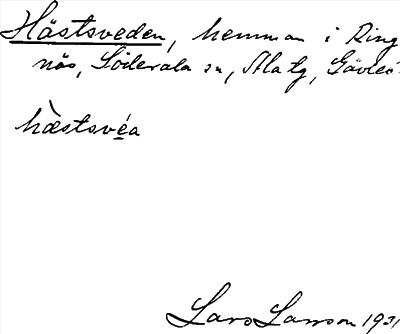 Hästsveden, hemman i Ring
näs, Söderala sn, Ala tg, Gävleb.
hæ̀stsvéa
Lars Larsson 1931